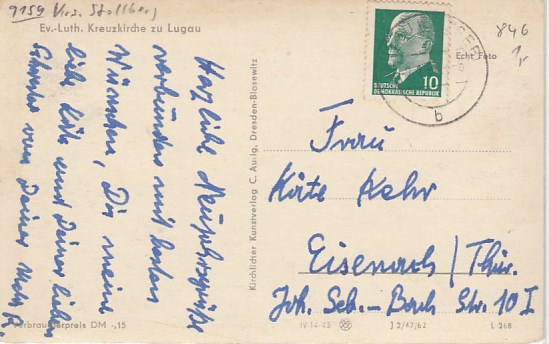 9159 Krs. Stollberg
Ev.-Luth. Kreuzkirche zu Lugau
846
1,-
Echt Foto
10
DEUTSCHE
DEMOKRATISCHE REPUBLIK
b
Herzliche Neujahrsgrüße
verbunden mit besten
Wünschen, Dir meine
liebe Käte und Deiner lieben
Schwester von Deiner
Frau
Käte Kehr
Eisenach/Thür.
Joh. Seb.-Bach Str. 10 I
Kirchlicher Kunstverlag C. Aurig, Dresden-Blasewitz
Verbraucherpreis DM -,15
IV-14-45
J 2/47/62
L 268